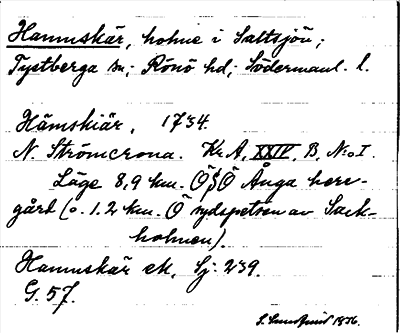 Hamnskär, holme i Saltsjön;
Tystberga sn; Rönö hd; Södermanl. l.
Hämskiär, 1734.
N. Strömcrona. Kr A, XXIV, B, No I.
Läge 8,9 km. ÖSÖ Ånga herr-
gård (o. 1.2 km. Ö sydspetsen av Sack-
holmen).
Hamnskär ek, Sj: 239.
G. 57.
1936.